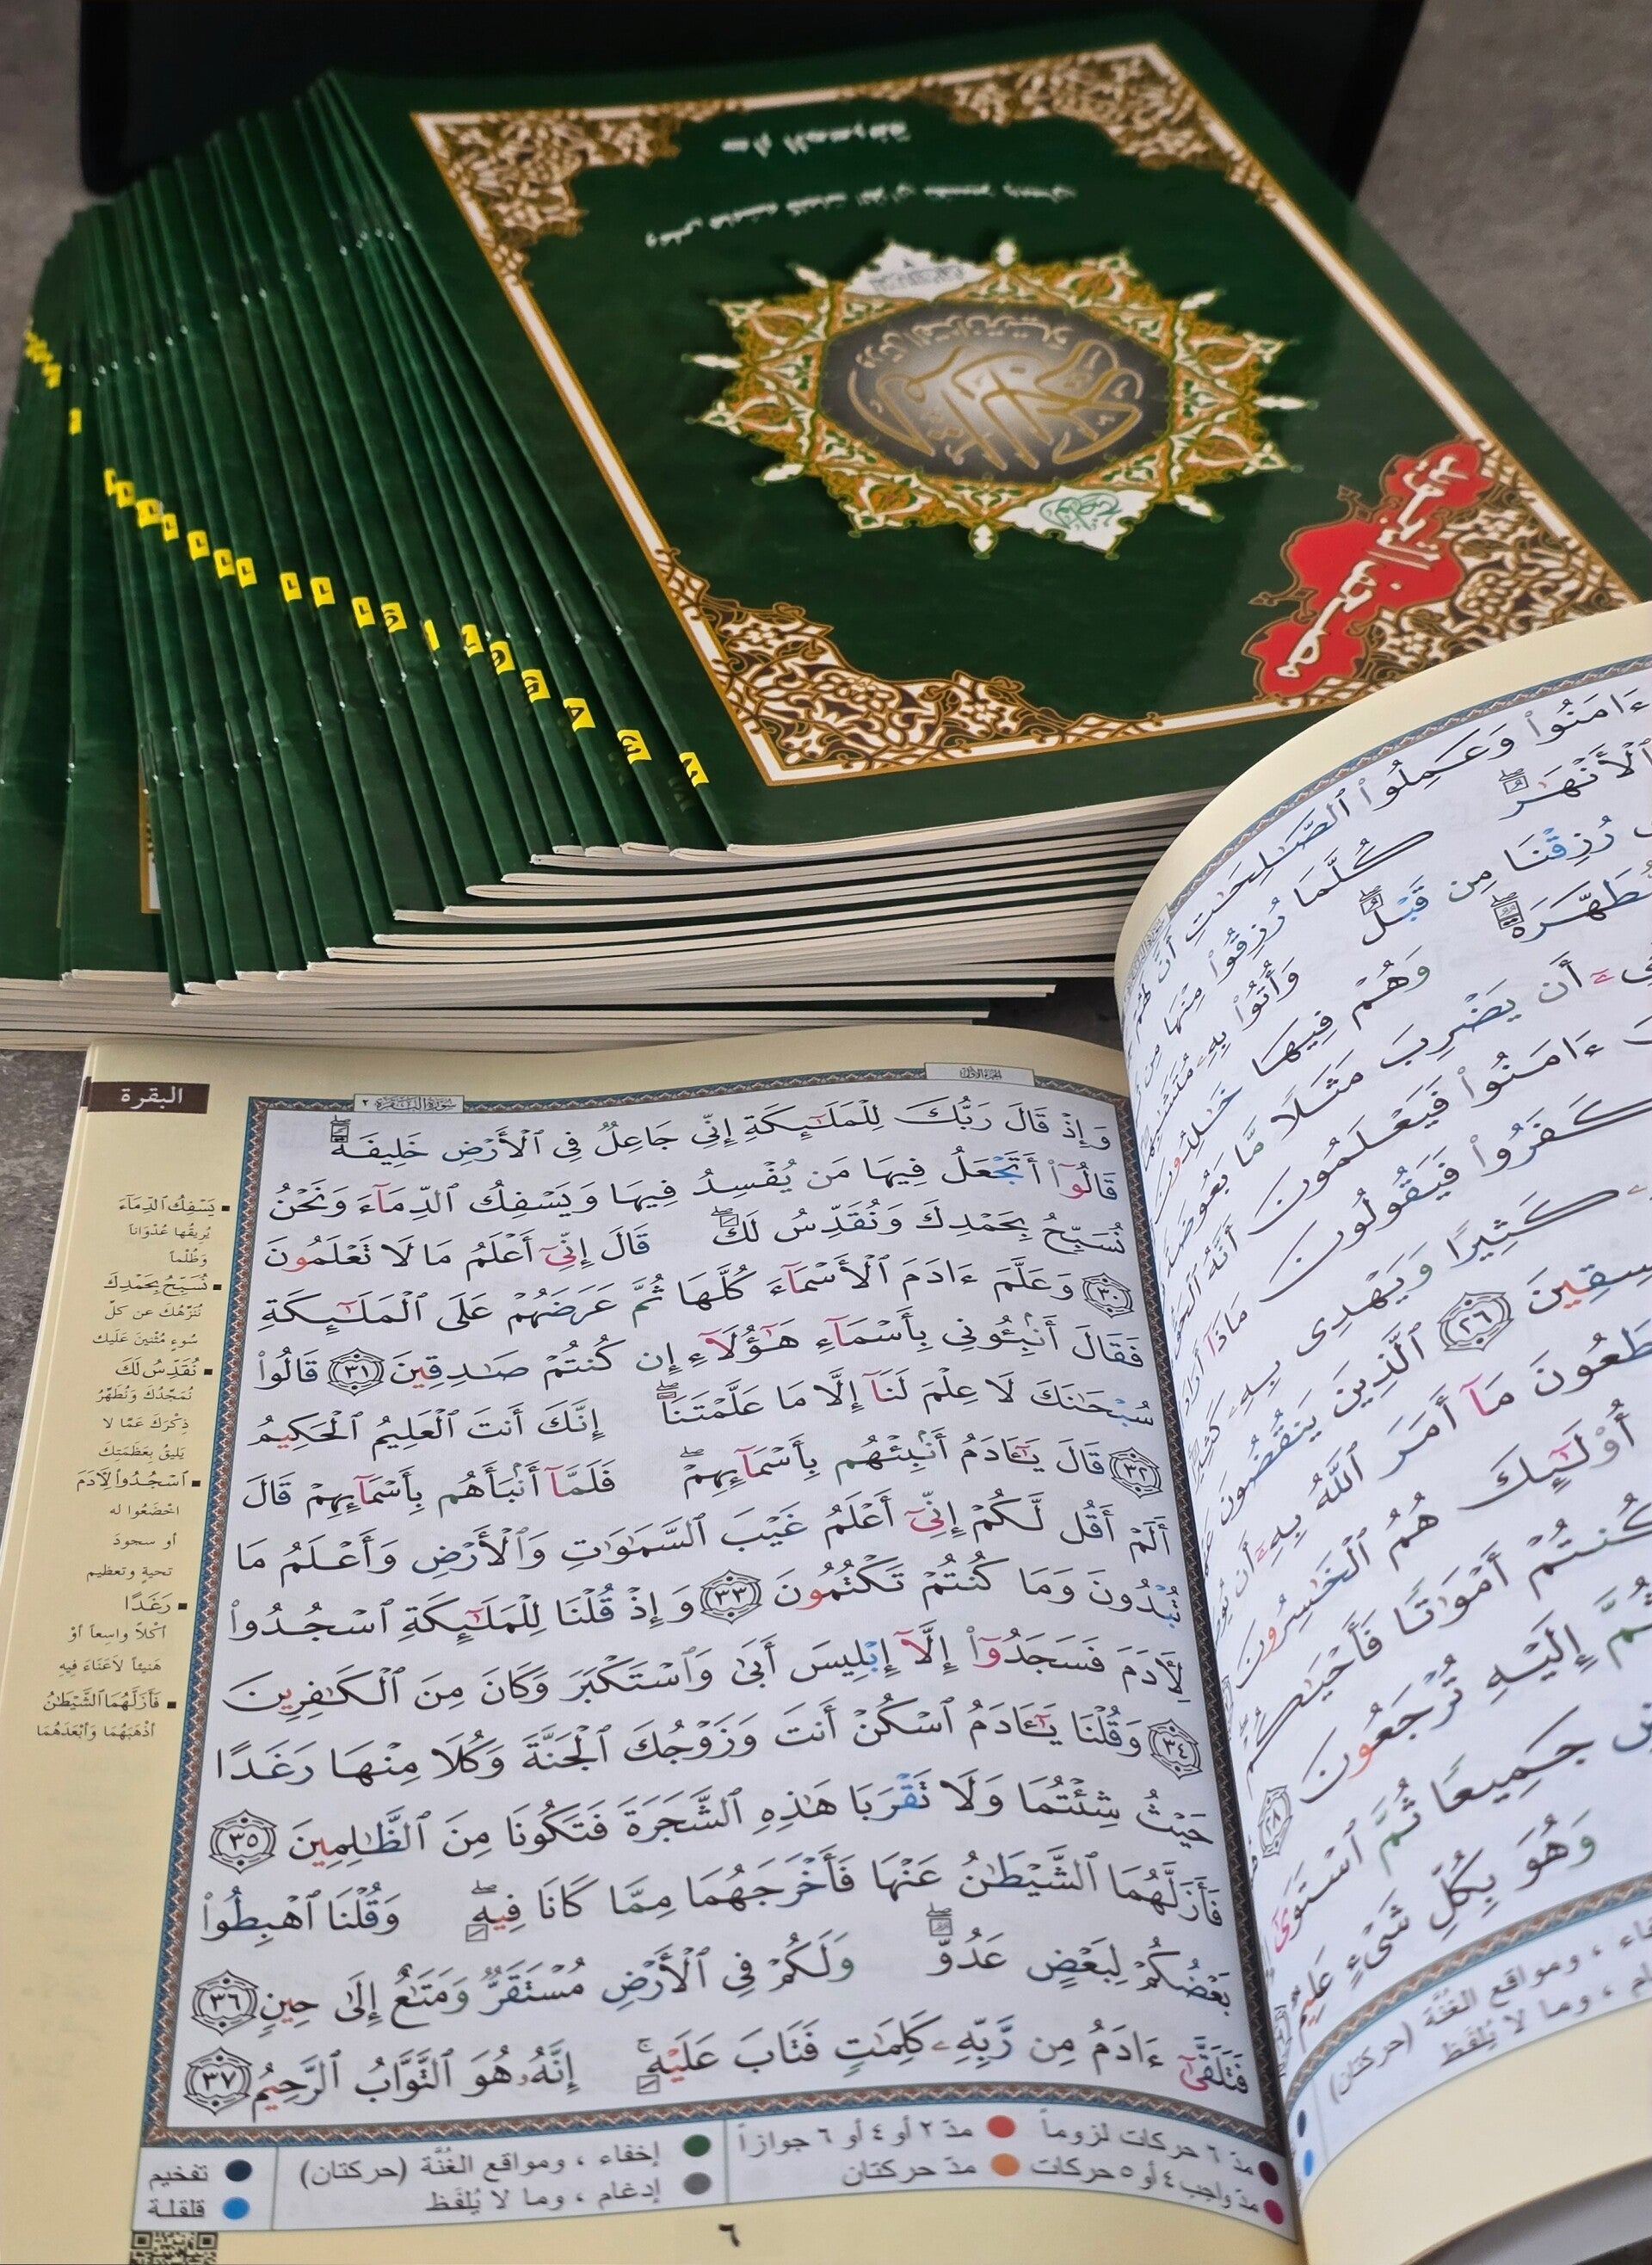 مصحف التجويد
ءَامَنُوا۟ وَعَمِلُوا۟ ٱلصَّـٰلِحَـٰتِ أَنَّ لَهُمْ
ٱلْأَنْهَـٰرُ ۖ كُلَّمَا رُزِقُوا۟ مِنْهَا مِن
رُزِقْنَا مِن قَبْلُ ۖ وَأُتُوا۟ بِهِۦ مُتَشَـٰبِهًا
مُّطَهَّرَةٌ ۖ وَهُمْ فِيهَا خَـٰلِدُونَ
أَن يَضْرِبَ مَثَلًا مَّا بَعُوضَةً
ءَامَنُوا۟ فَيَعْلَمُونَ أَنَّهُ ٱلْحَقُّ
كَفَرُوا۟ فَيَقُولُونَ مَاذَآ أَرَادَ
كَثِيرًا وَيَهْدِى بِهِۦ كَثِيرًا
ٱلْفَـٰسِقِينَ ٢٦ ٱلَّذِينَ يَنقُضُونَ
وَيَقْطَعُونَ مَآ أَمَرَ ٱللَّهُ بِهِۦٓ أَن يُوصَلَ
أُو۟لَـٰٓئِكَ هُمُ ٱلْخَـٰسِرُونَ
وَكُنتُمْ أَمْوَٰتًا فَأَحْيَـٰكُمْ
ثُمَّ إِلَيْهِ تُرْجَعُونَ ٢٨
جَمِيعًا ثُمَّ ٱسْتَوَىٰٓ
وَهُوَ بِكُلِّ شَىْءٍ عَلِيمٌ
، ومواقع الغُنَّة (حركتان)
، وما لا يُلفَظ
البقرة
سُورَةُ البَقَرَةِ ٢
الجزء الأول
وَإِذْ قَالَ رَبُّكَ لِلْمَلَـٰٓئِكَةِ إِنِّى جَاعِلٌ فِى ٱلْأَرْضِ خَلِيفَةً ۖ
قَالُوٓا۟ أَتَجْعَلُ فِيهَا مَن يُفْسِدُ فِيهَا وَيَسْفِكُ ٱلدِّمَآءَ وَنَحْنُ
نُسَبِّحُ بِحَمْدِكَ وَنُقَدِّسُ لَكَ ۖ قَالَ إِنِّىٓ أَعْلَمُ مَا لَا تَعْلَمُونَ
٣٠ وَعَلَّمَ ءَادَمَ ٱلْأَسْمَآءَ كُلَّهَا ثُمَّ عَرَضَهُمْ عَلَى ٱلْمَلَـٰٓئِكَةِ
فَقَالَ أَنۢبِـُٔونِى بِأَسْمَآءِ هَـٰٓؤُلَآءِ إِن كُنتُمْ صَـٰدِقِينَ ٣١ قَالُوا۟
سُبْحَـٰنَكَ لَا عِلْمَ لَنَآ إِلَّا مَا عَلَّمْتَنَآ ۖ إِنَّكَ أَنتَ ٱلْعَلِيمُ ٱلْحَكِيمُ
٣٢ قَالَ يَـٰٓـَٔادَمُ أَنۢبِئْهُم بِأَسْمَآئِهِمْ ۖ فَلَمَّآ أَنۢبَأَهُم بِأَسْمَآئِهِمْ قَالَ
أَلَمْ أَقُل لَّكُمْ إِنِّىٓ أَعْلَمُ غَيْبَ ٱلسَّمَـٰوَٰتِ وَٱلْأَرْضِ وَأَعْلَمُ مَا
تُبْدُونَ وَمَا كُنتُمْ تَكْتُمُونَ ٣٣ وَإِذْ قُلْنَا لِلْمَلَـٰٓئِكَةِ ٱسْجُدُوا۟
لِـَٔادَمَ فَسَجَدُوٓا۟ إِلَّآ إِبْلِيسَ أَبَىٰ وَٱسْتَكْبَرَ وَكَانَ مِنَ ٱلْكَـٰفِرِينَ
٣٤ وَقُلْنَا يَـٰٓـَٔادَمُ ٱسْكُنْ أَنتَ وَزَوْجُكَ ٱلْجَنَّةَ وَكُلَا مِنْهَا رَغَدًا
حَيْثُ شِئْتُمَا وَلَا تَقْرَبَا هَـٰذِهِ ٱلشَّجَرَةَ فَتَكُونَا مِنَ ٱلظَّـٰلِمِينَ ٣٥
فَأَزَلَّهُمَا ٱلشَّيْطَـٰنُ عَنْهَا فَأَخْرَجَهُمَا مِمَّا كَانَا فِيهِ ۖ وَقُلْنَا ٱهْبِطُوا۟
بَعْضُكُمْ لِبَعْضٍ عَدُوٌّ ۖ وَلَكُمْ فِى ٱلْأَرْضِ مُسْتَقَرٌّ وَمَتَـٰعٌ إِلَىٰ حِينٍ ٣٦
فَتَلَقَّىٰٓ ءَادَمُ مِن رَّبِّهِۦ كَلِمَـٰتٍ فَتَابَ عَلَيْهِ ۚ إِنَّهُۥ هُوَ ٱلتَّوَّابُ ٱلرَّحِيمُ ٣٧
يَسْفِكُ ٱلدِّمَآءَ
يُرِيقُها عُدْواناً
وَظُلْماً
نُسَبِّحُ بِحَمْدِكَ
نُنَزِّهُكَ عن كلّ
سُوءٍ مُثْنينَ عَلَيك
نُقَدِّسُ لَكَ
نُمَجِّدُكَ وَنُطَهِّرُ
ذِكْرَكَ عَمّا لا
يَليقُ بِعَظَمَتِكَ
ٱسْجُدُوا۟ لِـَٔادَمَ
اخْضَعُوا له
أو سجودَ
تحيةٍ وتعظيم
رَغَدًا
أكْلاً واسِعاً أوْ
هَنيئاً لاَعَنَاءَ فِيهِ
فَأَزَلَّهُمَا ٱلشَّيْطَـٰنُ
أذْهَبَهُمَا وَأبْعَدَهُمَا
مدّ ٦ حركات لزوماً مدّ ٢ أو ٤ أو ٦ جوازاً
مدّ واجب ٤ أو ٥ حركات مدّ حركتان
إخفاء ، ومواقع الغُنَّة (حركتان)
إدغام ، وما لا يُلفَظ
تفخيم
قلقلة
٦